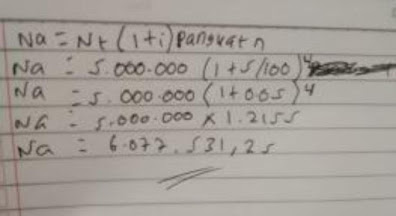 Na = Nt (1+i) pangkat n
Na = 5.000.000 (1+5/100)⁴
Na = 5.000.000 (1+0.05)⁴
Na = 5.000.000 x 1.2155
Na = 6.077.531,25